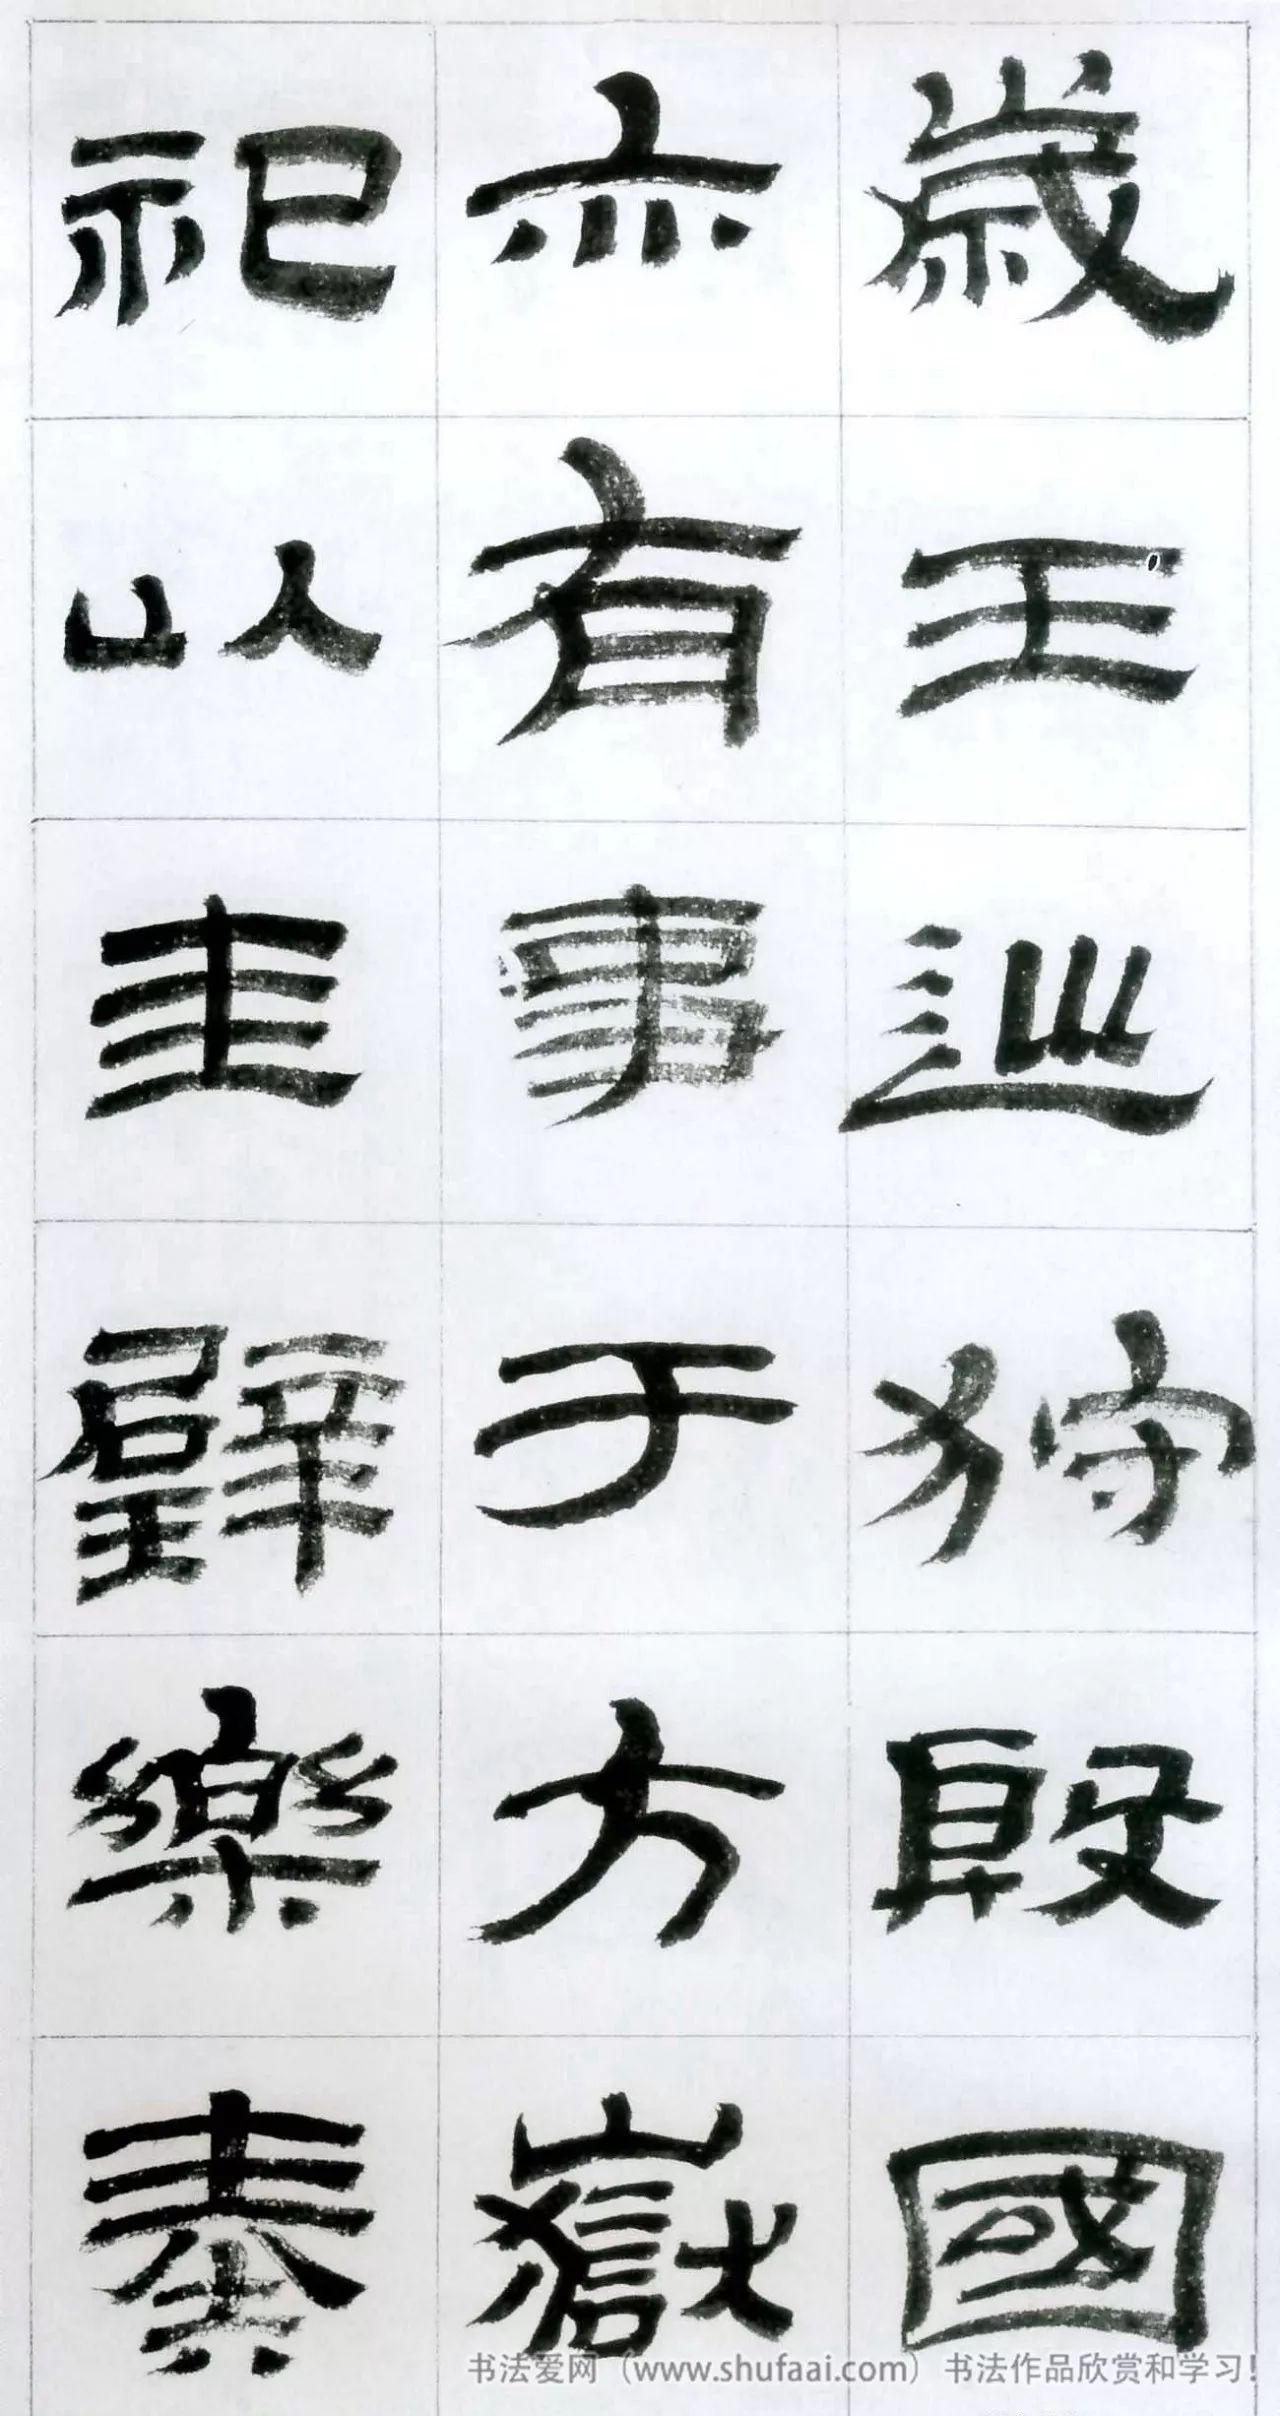 歲王巡狩殷國
亦有事于方嶽
祀以圭璧樂奏
书法爱网（www.shufaai.com）书法作品欣赏和学习！